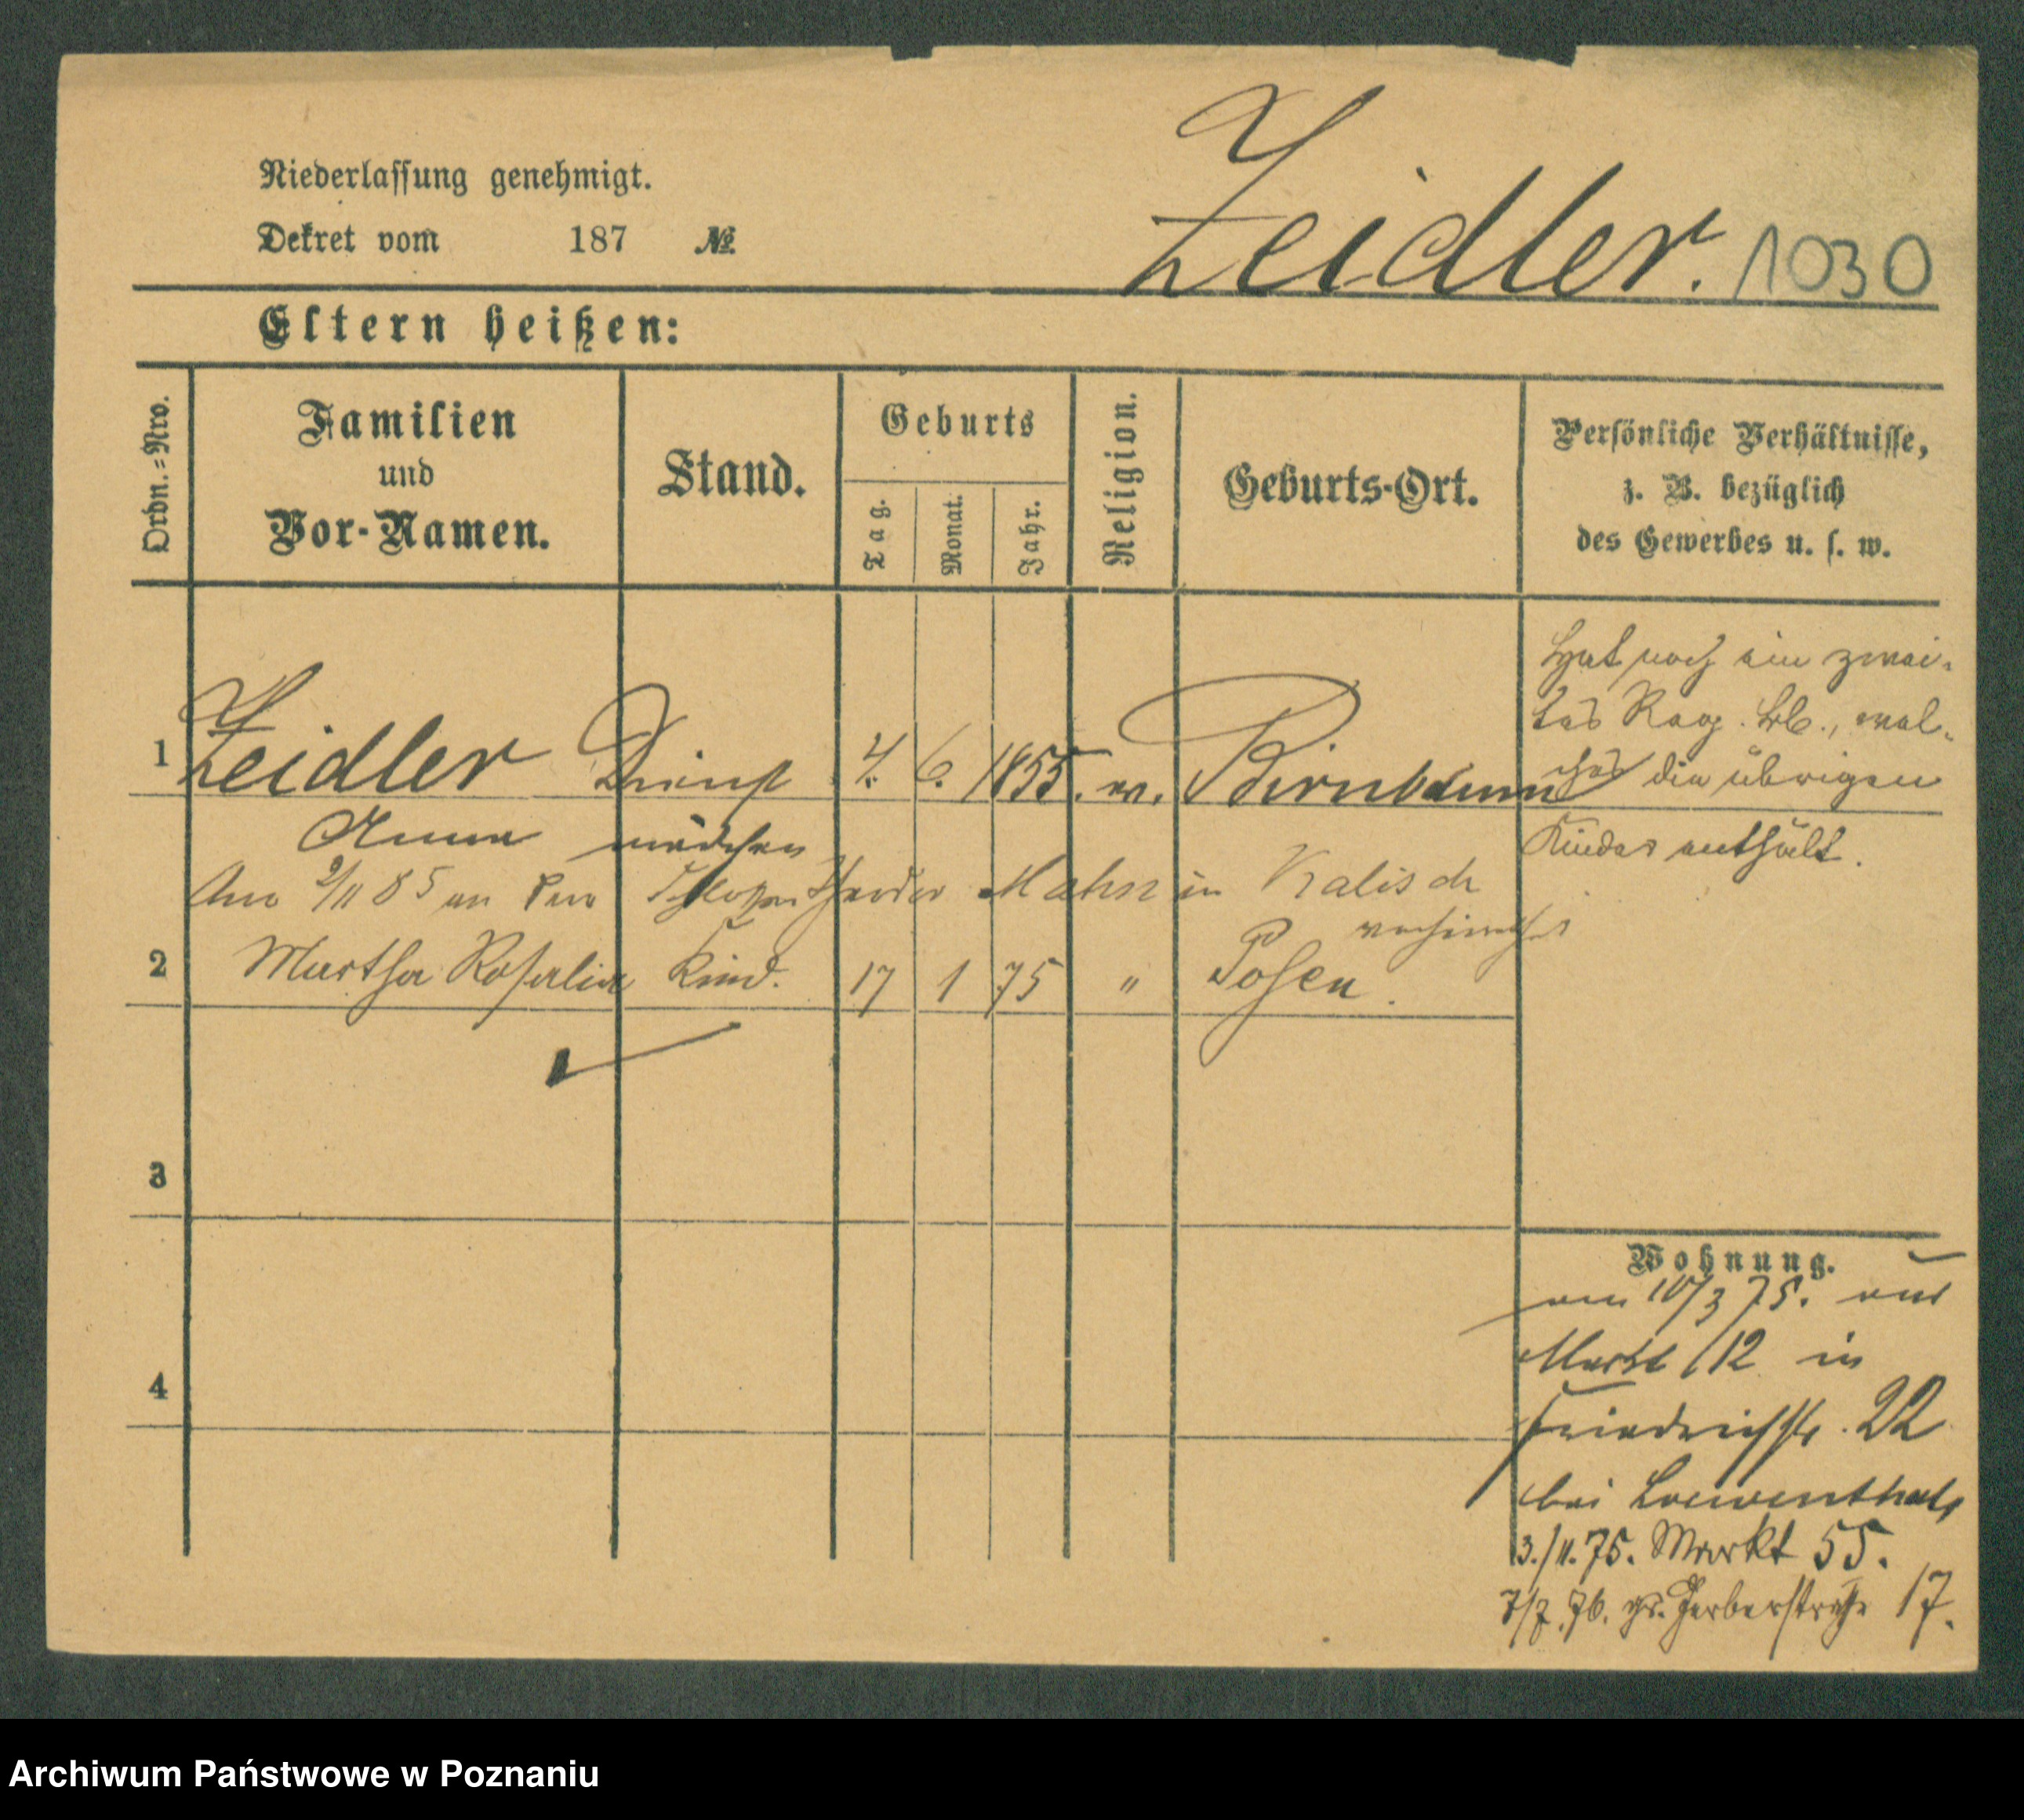 Niederlassung genehmigt.
Dekret vom 187 №
Zeidler. 1030
Eltern heißen:
Ordn.=Nro.
Familien
und
Vor-Namen.
Stand.
Geburts
Tag.
Monat.
Jahr.
Religion.
Geburts-Ort.
Persönliche Verhältnisse,
z. B. bezüglich
des Gewerbes u. s. w.
1 Zeidler Dienst 4. 6. 1855. ev. Birnbaum
Anna mädchen
Am 2/11 85 an den Theodor Mahn in Kalisch
verheirathet
2 Martha Rosalia Kind. 17 1 75 " Posen.
3
4
Hat noch ein zwei-
tes Reg. Bl., wel-
ches die übrigen
Kinder enthält.
Wohnung.
am 10/3 75. aus
Markt 12 in
Friedrichstr. 22
bei Loewenthal
3./11. 75. Markt 55.
7/7. 76. gr. Gerberstraße 17.
Archiwum Państwowe w Poznaniu